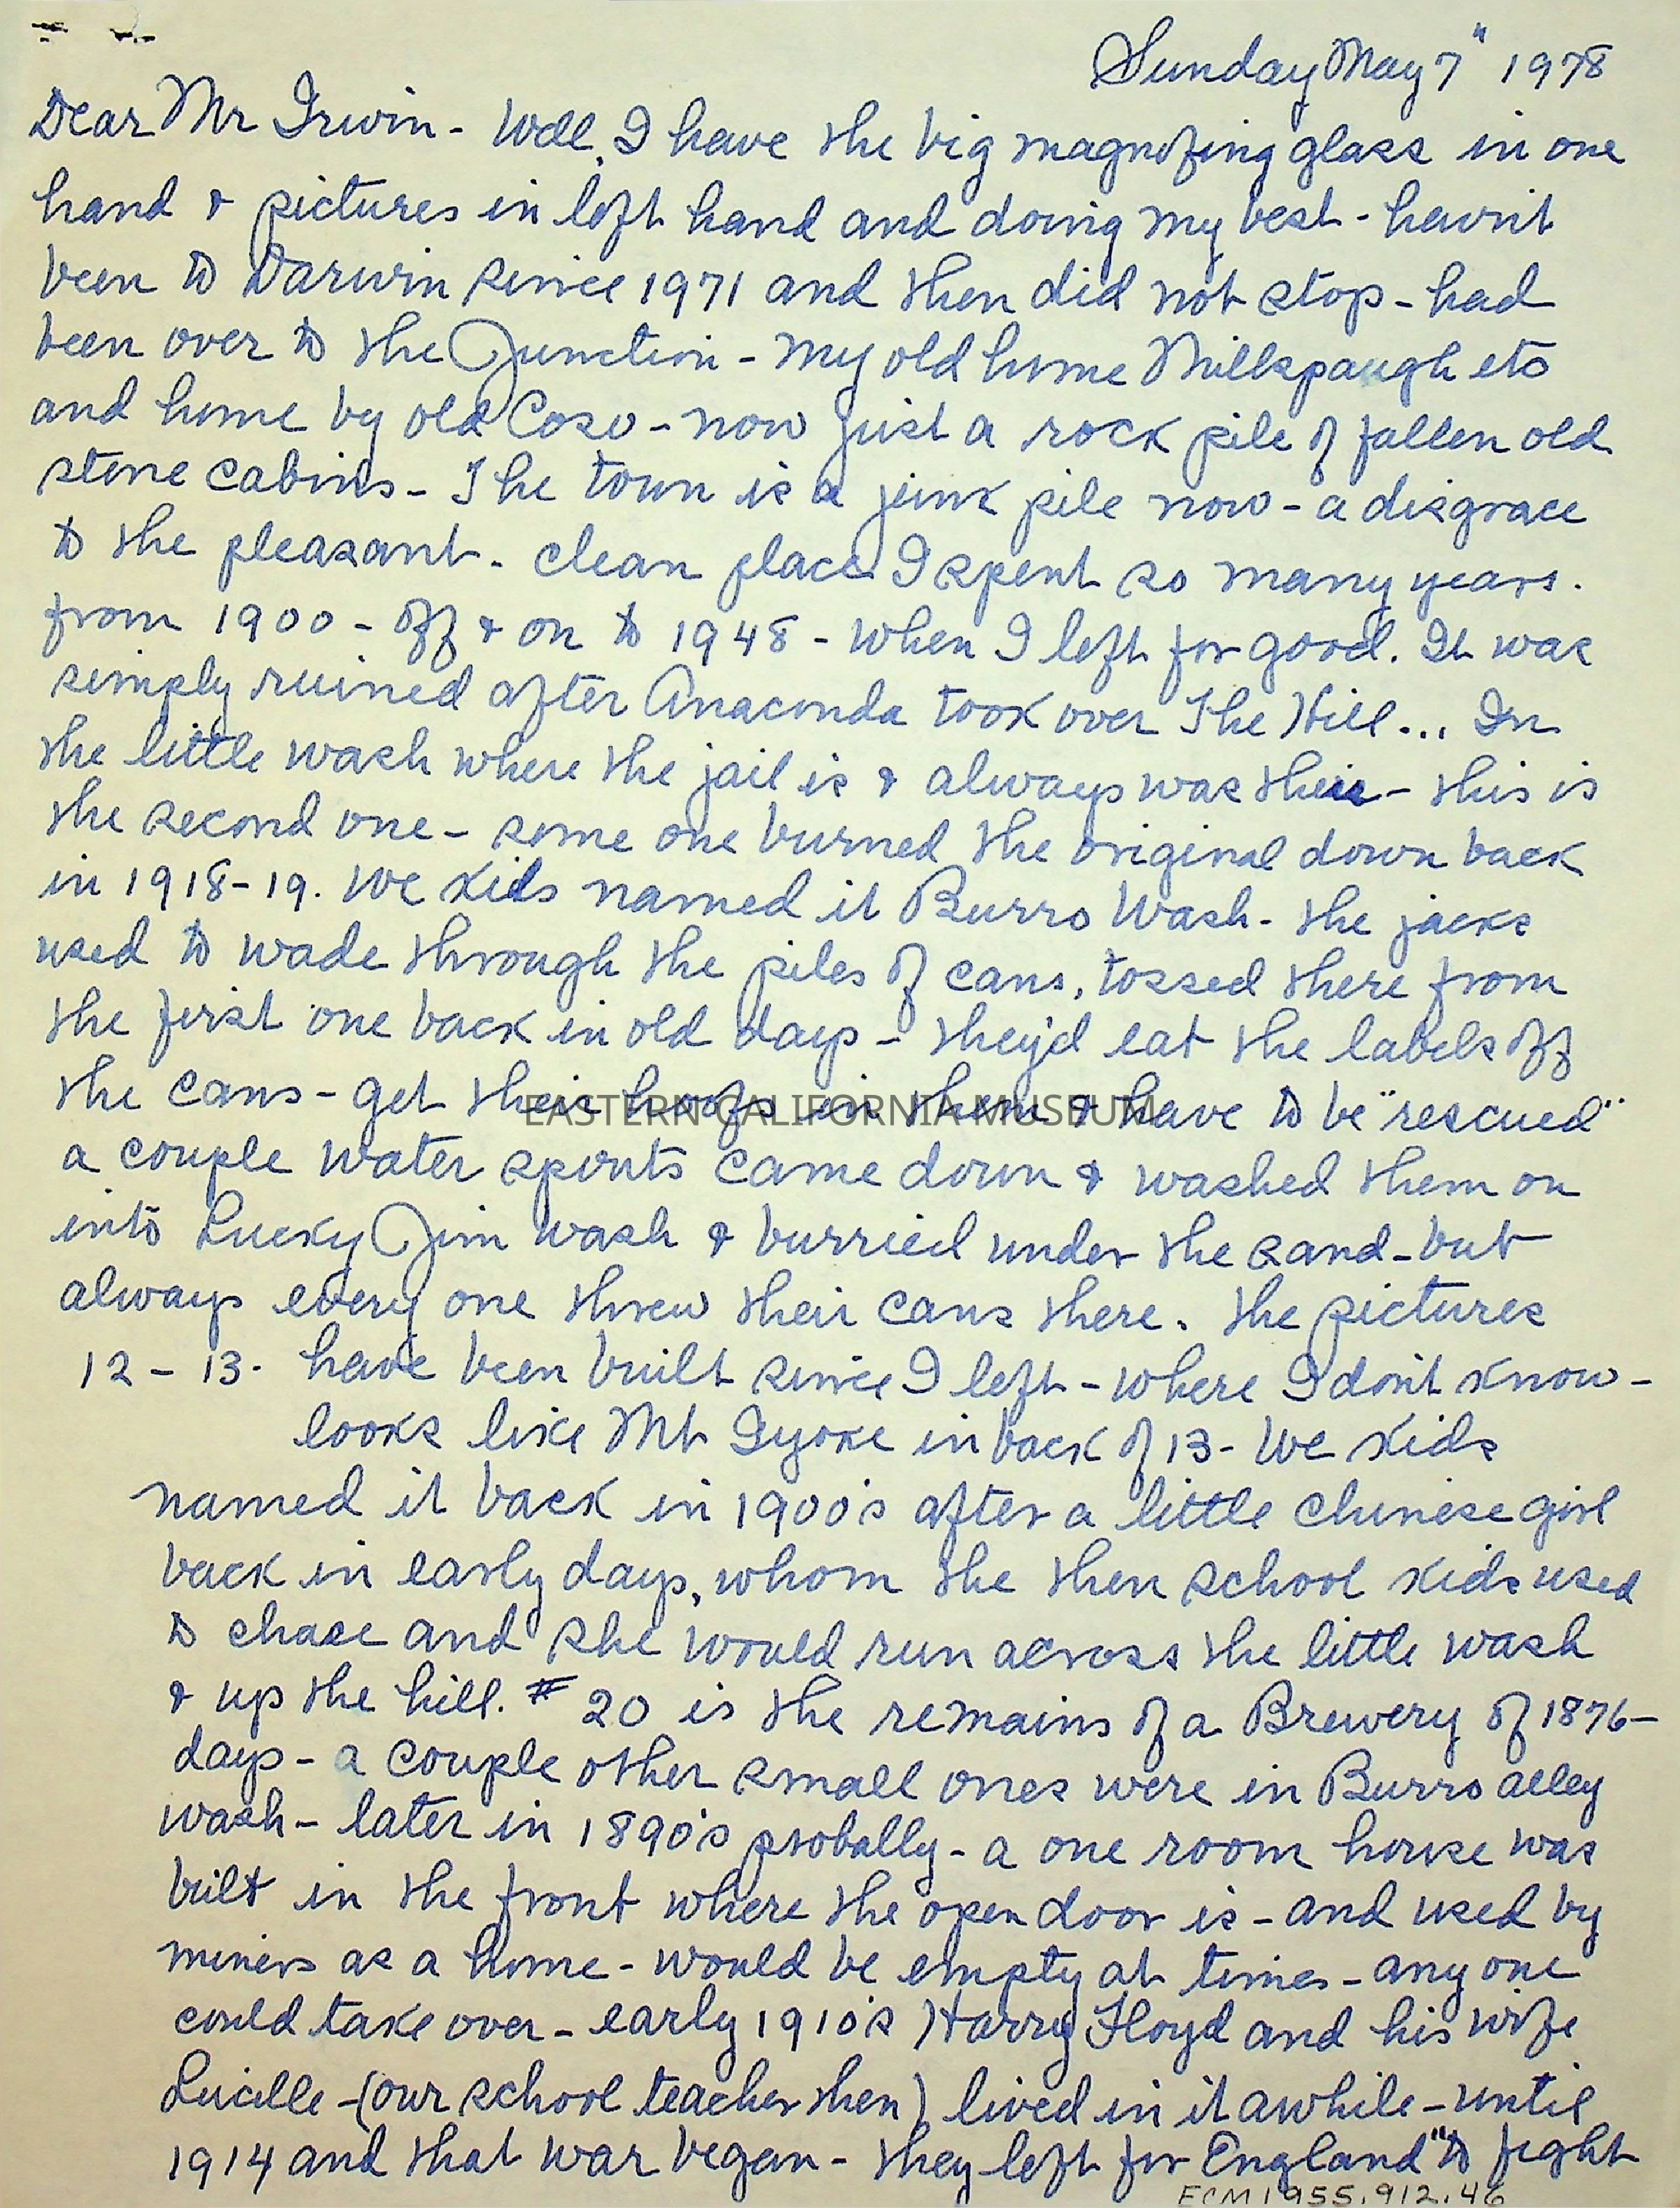 Sunday May 7" 1978
Dear Mr Irwin - Well, I have the big magnifing glass in one
hand & pictures in left hand and doing my best - havn't
been to Darwin since 1971 and then did not stop - had
been over to the Junction - my old home Millspaugh etc
and home by old Coso - now just a rock pile of fallen old
stone cabins - The town is a junk pile now - a disgrace
to the pleasant - clean place I spent so many years.
from 1900 - off & on to 1948 - when I left for good. It was
simply ruined after Anaconda took over The Hill... In
the little wash where the jail is & always was their - this is
the second one - some one burned the original down back
in 1918-19. We kids named it Burro Wash - the jacks
used to wade through the piles of cans, tossed there from
the first one back in old days - they'd eat the labels off
the cans - get their hoofs in them & have to be "rescued"
EASTERN CALIFORNIA MUSEUM
a couple water spouts came down & washed them on
into Lucky Jim wash & burried under the sand - but
always every one threw their cans there. The pictures
12 - 13 - have been built since I left - where I don't know -
looks like Mt Gyoke in back of 13 - We kids
named it back in 1900's after a little chinese girl
back in early days, whom the then school kids used
to chase and she would run across the little wash
& up the hill. # 20 is the remains of a Brewery of 1876 -
days - a couple other small ones were in Burro alley
wash - later in 1890's probally - a one room house was
built in the front where the open door is - and used by
miners as a home - would be empty at times - any one
could take over - early 1910's Harry Floyd and his wife
Lucille - (our school teacher then) lived in it awhile - until
1914 and that war began - they left for England "to fight
ECM 1955.912.46